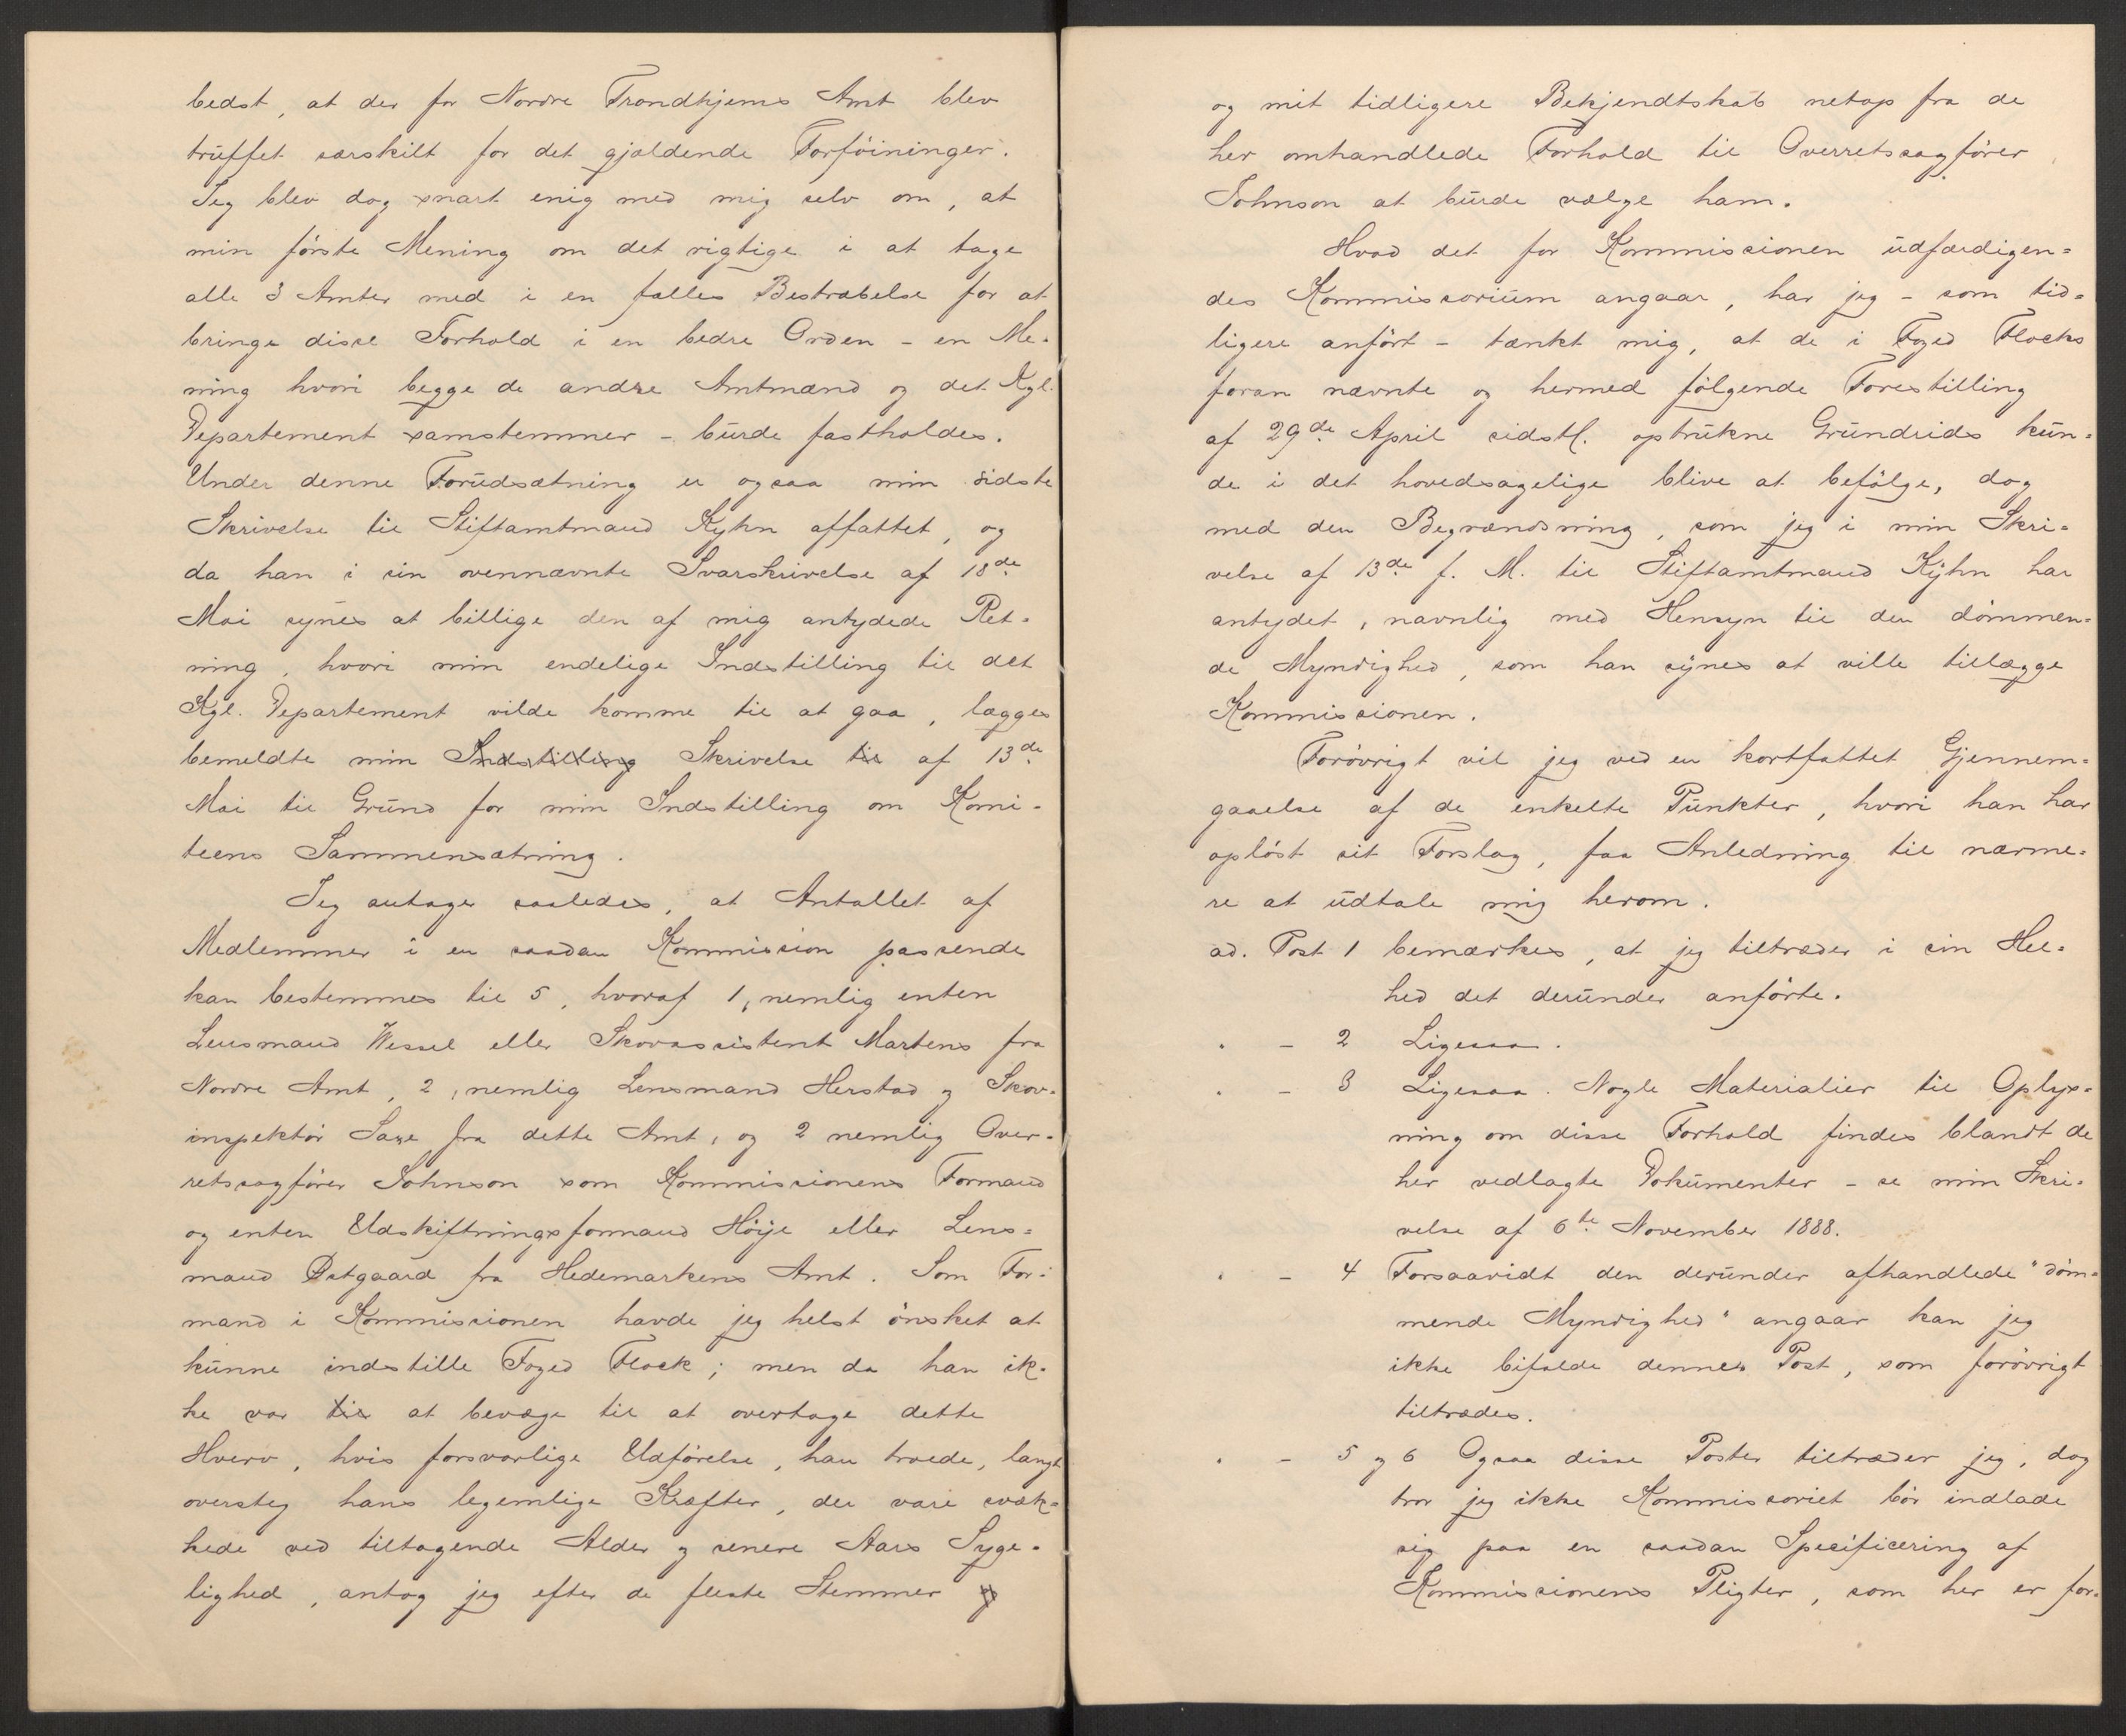 bedst, at der for Nordre Trondhjems Amt blev
truffet særskilt for det gjældende Forföininger.
Jeg blev dog snart enig med mig selv om, at
min förste Mening om det rigtige i at tage
alle 3 Amter med i en fælles Bestræbelse for at
bringe disse Forhold i en bedre Orden - en Me-
ning hvori begge de andre Amtmænd og det Kgl.
Departement samstemmer - burde fastholdes.
Under denne Forudsætning er ogsaa min sidste
Skrivelse til Stiftamtmand Kyhn affattet, og
da han i sin ovennævnte Svarskrivelse af 18de
Mai synes at billige den af mig antydede Ret-
ning, hvori min endelige Indstilling til det
Kgl. Departement vilde komme til at gaa, lægges
bemeldte min Indstilling Skrivelse til af 13de
Mai til Grund for min Indstilling om Komi-
teens Sammensætning.
Jeg antager saaledes, at Antallet af
Medlemmer i en saadan Kommission passende
kan bestemmes til 5, hvoraf 1, nemlig enten
Lensmand Wessel eller Skovassistent Martens fra
Nordre Amt, 2, nemlig Lensmand Herstad og Skov-
inspektör Saxe fra dette Amt, og 2 nemlig Over-
retssagförer Johnson som Kommissionens Formand
og enten Udskiftningsformand Höije eller Lens-
mand Østgaard fra Hedemarkens Amt. Som For-
mand i Kommissionen havde jeg helst önsket at
kunne indstille Foged Flock; men da han ik-
ke var til at bevæge til at overtage dette
Hverv, hvis forsvarlige Udförelse, han troede, langt
oversteg hans legemlige Kræfter, der vare svæk-
kede ved tiltagende Alder og senere Aars Syge-
lighed, antog jeg efter de fleste Stemmer og
og mit tidligere Bekjendtskab netop fra de
her omhandlede Forhold til Overretssagförer
Johnson at burde vælge ham.
Hvad det for Kommissionen udfærdigen-
des Kommissorium angaar, har jeg - som tid-
ligere anfört - tænkt mig, at de i Foged Flocks
foran nævnte og hermed fölgende Forestilling
af 29de April sidstl. optrukne Grundrids kun-
de i det hovedsagelige blive at befölge, dog
med den Begrændsning, som jeg i min Skri-
velse af 13de f. M. til Stiftamtmand Kyhn har
antydet, navnlig med Hensyn til den dömmen-
de Myndighed, som han synes at ville tillægge
Kommissionen.
Forövrigt vil jeg ved en kortfattet Gjennem-
gaaelse af de enkelte Punkter, hvori han har
oplöst sit Forslag, faa Anledning til nærme-
re at udtale mig herom.
ad. Post 1 bemærkes, at jeg tiltræder i sin Hel-
hed det derunder anförte.
" - 2 Ligesaa.
" - 3 Ligesaa. Nogle Materialier til Oplys-
ning om disse Forhold findes blandt de
her vedlagte Dokumenter - se min Skri-
velse af 6te November 1888.
" - 4 Forsaavidt den derunder afhandlede "döm-
mende Myndighed" angaar kan jeg
ikke bifalde dennes Post, som forövrigt
tiltrædes.
" - 5 og 6 Ogsaa disse Poster tiltræder jeg, dog
tror jeg ikke Kommissoriet bör indlade
sig paa en saadan Specificering af
Kommissionens Pligter, som her er for-